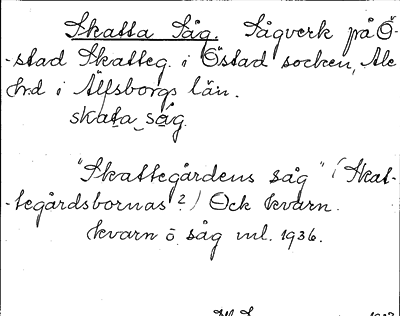 Skatta Såg. Sågverk på Ö-
-stad Skatteg. i Östad socken, Ale
hrd i Älfsborgs län.
skata såg.
"Skattegårdens såg" (Skat-
-tegårdsbornas?) Ock kvarn.
kvarn o såg nml. 1936.